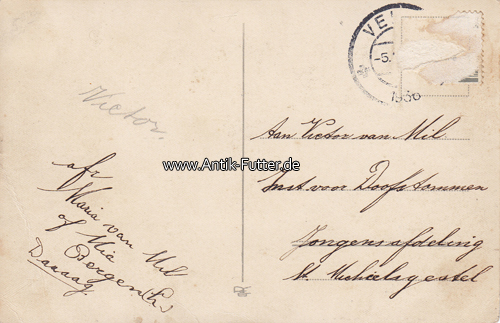 Victor.
afz
Maria van Mil
of Mia
Bergen
Daaaag
VE
-5.
1936
Aan Victor van Mil
Inst voor Doofstommen
Jongensafdeling
St. Michielsgestel
www.Antik-Futter.de